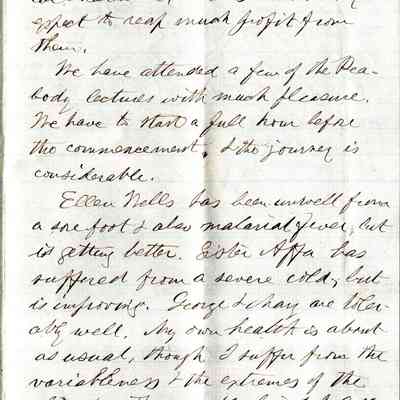 expect to reap much profit from
them.
We have attended a few of the Pea-
body lectures with much pleasure.
We have to start a full hour before
the commencement, & the journey is
considerable.
Ellen Wells has been unwell from
a sore foot & also malarial fever, but
is getting better. Sister Affa has
suffered from a severe cold, but
is improving. George & Mary are toler-
ably well. My own health is about
as usual, though I suffer from the
variableness & the extremes of the